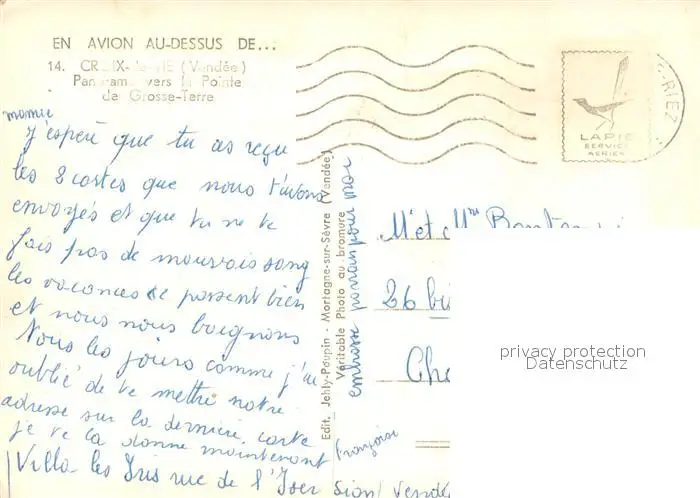 EN AVION AU-DESSUS DE...
14. CROIX-de-VIE (Vendée)
Panorama vers la Pointe
de Grosse-Terre
-RIEZ
LAPIE
SERVICE
AERIEN
mamie
J'espère que tu as reçu
les 2 cartes que nous t'avons
envoyés et que tu ne te
fais pas de mauvais sang
les vacances se passent bien
et nous nous baignons
Tous les jours comme j'ai
oublié de te mettre notre
adresse sur la dernière carte
je te la donne maintenant
Villa les Iris rue de l'Iser Sion Vendée
embrasse parrain pour moi
Françoise
Edit. Jehly-Poupin - Mortagne-sur-Sèvre (Vendée)
Véritable Photo au bromure
M et Mme
26 bis
Ch
privacy protection
Datenschutz